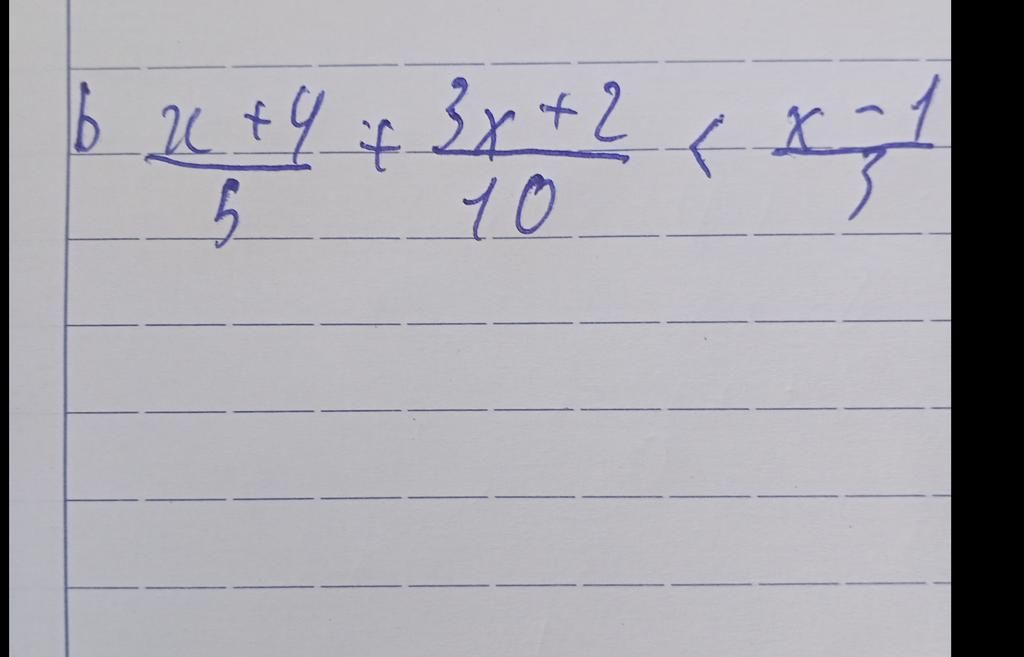 b x+4/5 + 3x+2/10 < x-1/3